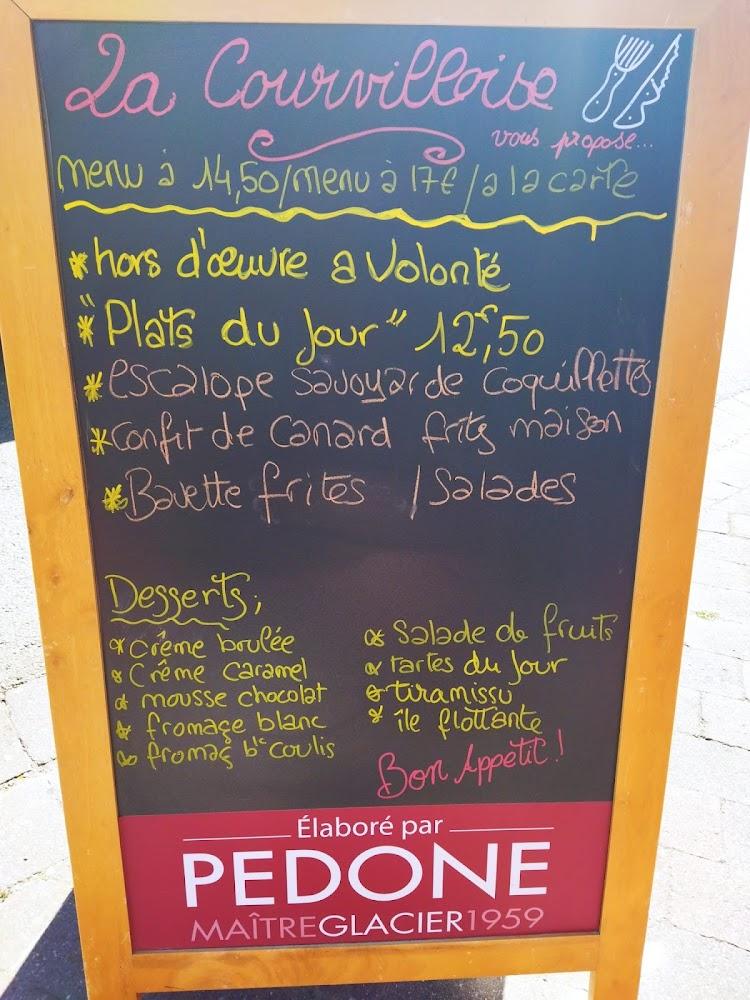 La Courvilloise
vous propose...
menu à 14,50/menu à 17€/a la carte
*hors d'œuvre a volonté
* "Plats du Jour" 12€,50
*escalope savoyarde coquillettes
*confit de canard frits maison
*Bavette frites /Salades
Desserts;
* Crême brulée
* Crême caramel
* mousse chocolat
* fromage blanc
* fromag bc coulis
* Salade de fruits
* tartes du Jour
* tiramissu
* île flottante
Bon Appetit!
Élaboré par
PEDONE
MAÎTREGLACIER1959